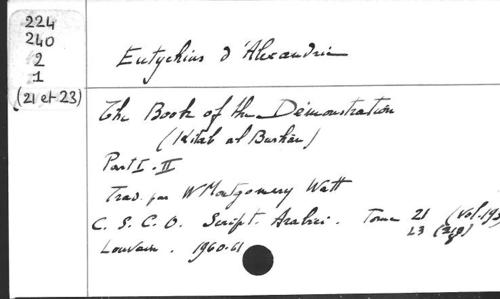 224
240
2
1
(21 et 23)
Eutychius d'Alexandrie
The Book of the Demonstration
(Kitab al Burhân)
Part I. II
Trad. par W Montgomery Watt
C. S. C. O. Script. Arabici. Tome 21 (Vol. 192
23 (
Louvain. 1960-61